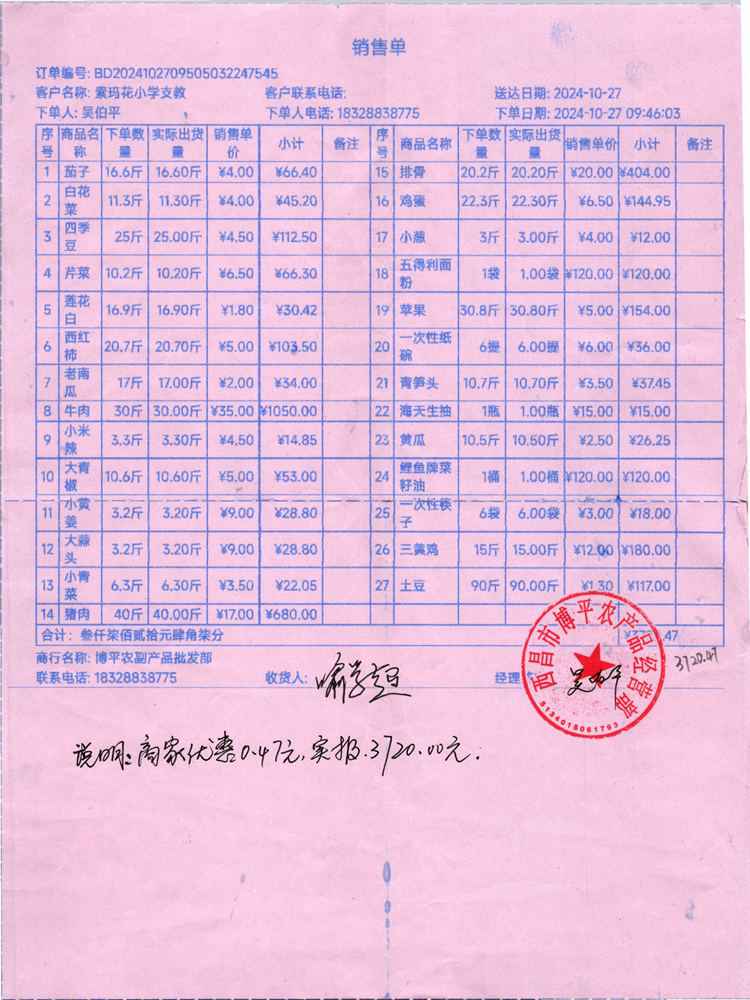 销售单
订单编号: BD2024102709505032247545
客户名称: 索玛花小学支教 客户联系电话: 送达日期: 2024-10-27
下单人: 吴伯平 下单人电话: 18328838775 下单日期: 2024-10-27 09:46:03
序号 商品名称 下单数量 实际出货量 销售单价 小计 备注 序号 商品名称 下单数量 实际出货量 销售单价 小计 备注
1 茄子 16.6斤 16.60斤 ¥4.00 ¥66.40 15 排骨 20.2斤 20.20斤 ¥20.00 ¥404.00
2 白花菜 11.3斤 11.30斤 ¥4.00 ¥45.20 16 鸡蛋 22.3斤 22.30斤 ¥6.50 ¥144.95
3 四季豆 25斤 25.00斤 ¥4.50 ¥112.50 17 小葱 3斤 3.00斤 ¥4.00 ¥12.00
4 芹菜 10.2斤 10.20斤 ¥6.50 ¥66.30 18 五得利面粉 1袋 1.00袋 ¥120.00 ¥120.00
5 莲花白 16.9斤 16.90斤 ¥1.80 ¥30.42 19 苹果 30.8斤 30.80斤 ¥5.00 ¥154.00
6 西红柿 20.7斤 20.70斤 ¥5.00 ¥103.50 20 一次性纸碗 6提 6.00提 ¥6.00 ¥36.00
7 老南瓜 17斤 17.00斤 ¥2.00 ¥34.00 21 青笋头 10.7斤 10.70斤 ¥3.50 ¥37.45
8 牛肉 30斤 30.00斤 ¥35.00 ¥1050.00 22 海天生抽 1瓶 1.00瓶 ¥15.00 ¥15.00
9 小米辣 3.3斤 3.30斤 ¥4.50 ¥14.85 23 黄瓜 10.5斤 10.50斤 ¥2.50 ¥26.25
10 大青椒 10.6斤 10.60斤 ¥5.00 ¥53.00 24 鲤鱼牌菜籽油 1桶 1.00桶 ¥120.00 ¥120.00
11 小黄姜 3.2斤 3.20斤 ¥9.00 ¥28.80 25 一次性筷子 6袋 6.00袋 ¥3.00 ¥18.00
12 大蒜头 3.2斤 3.20斤 ¥9.00 ¥28.80 26 三黄鸡 15斤 15.00斤 ¥12.00 ¥180.00
13 小青菜 6.3斤 6.30斤 ¥3.50 ¥22.05 27 土豆 90斤 90.00斤 ¥1.30 ¥117.00
14 猪肉 40斤 40.00斤 ¥17.00 ¥680.00
合计: 叁仟柒佰贰拾元肆角柒分
商行名称: 博平农副产品批发部 3720.47
联系电话: 18328838775 收货人: 经理
西昌市博平农产品经营部
5134015061793
说明:商家优惠0.47元,实报3720.00元.